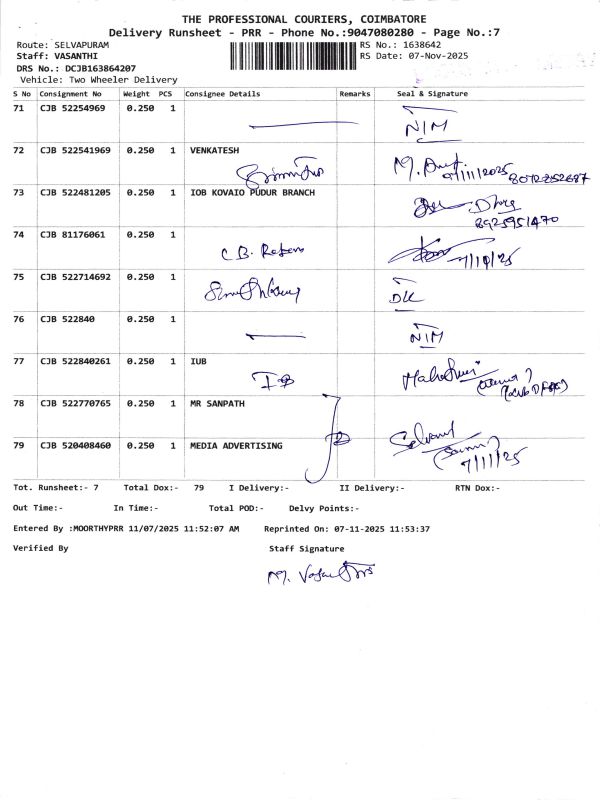 THE PROFESSIONAL COURIERS, COIMBATORE
Delivery Runsheet - PRR - Phone No.:9047080280 - Page No.:7
Route: SELVAPURAM RS No.: 1638642
Staff: VASANTHI RS Date: 07-Nov-2025
DRS No.: DCJB163864207
Vehicle: Two Wheeler Delivery
S No Consignment No Weight PCS Consignee Details Remarks Seal & Signature
71 CJB 52254969 0.250 1
NIM
72 CJB 522541969 0.250 1 VENKATESH
7/11/2025
8072252687
73 CJB 522481205 0.250 1 IOB KOVAIO PUDUR BRANCH
8925951470
74 CJB 81176061 0.250 1
C.B.
75 CJB 522714692 0.250 1
DK
76 CJB 522840 0.250 1
NIM
77 CJB 522840261 0.250 1 IUB
78 CJB 522770765 0.250 1 MR SANPATH
79 CJB 520408460 0.250 1 MEDIA ADVERTISING
7/11/25
Tot. Runsheet:- 7 Total Dox:- 79 I Delivery:- II Delivery:- RTN Dox:-
Out Time:- In Time:- Total POD:- Delvy Points:-
Entered By :MOORTHYPRR 11/07/2025 11:52:07 AM Reprinted On: 07-11-2025 11:53:37
Verified By Staff Signature
M.